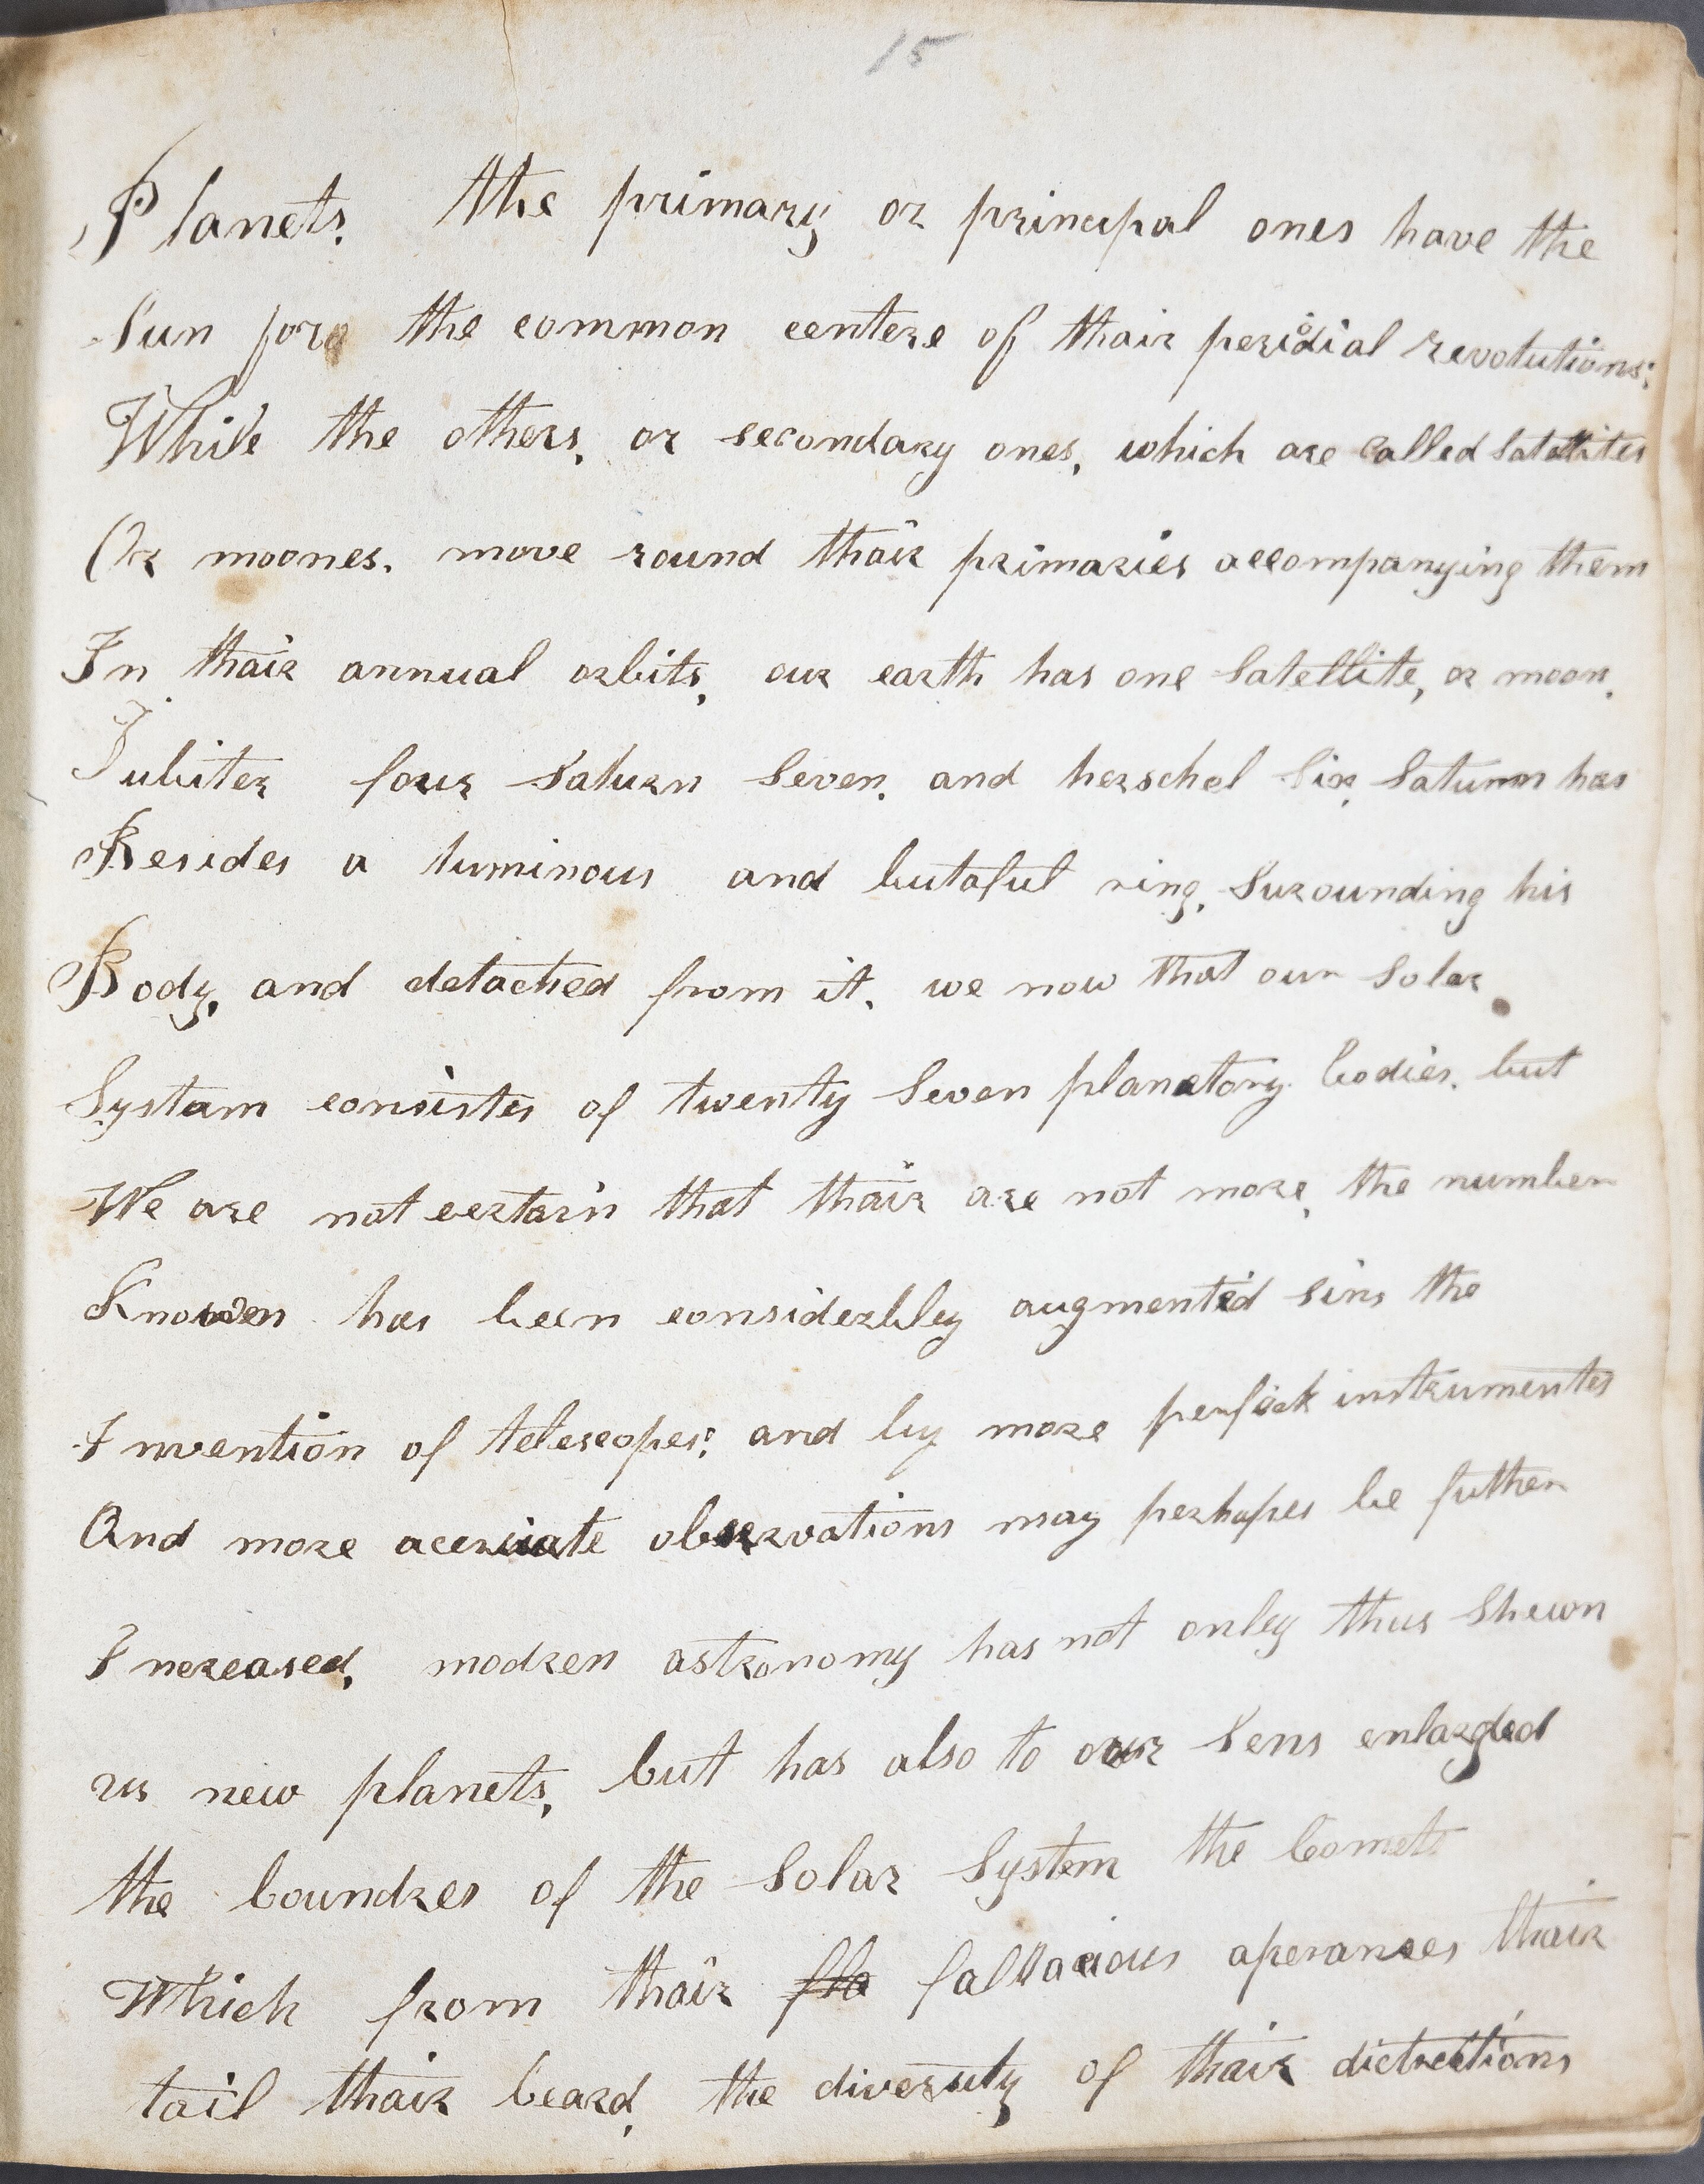 15
Planets. the primary or principal ones have the
Sun fore the common centere of thair peridial revolutions;
While the others, or secondary ones, which are called Satellites
Or moones. move round thair primaries accompanying them
In thair annual orbits, our earth has one Satellite, or moon.
Jubiter four Saturn Seven. and herschel Six, Saturn has
Besides a luminous and butaful ring, Surounding his
Body, and detached from it. we now that our Solar
Systam consistes of twenty Seven planatory bodies. but
We are not certain that thair are not more, the number
Knowen has been considerbley augmented sins the
Invention of telescopes; and by more perfect instrumentes
And more accruate observations may perhapes be futher
Increased, modren astronomy has not onley thus Shewn
us new planets, but has also to our Sens enlarged
the boundres of the Solar System the Comets
Which from thair fla fallacious aperances thair
tail thair beard, the diversity of thair dictrections